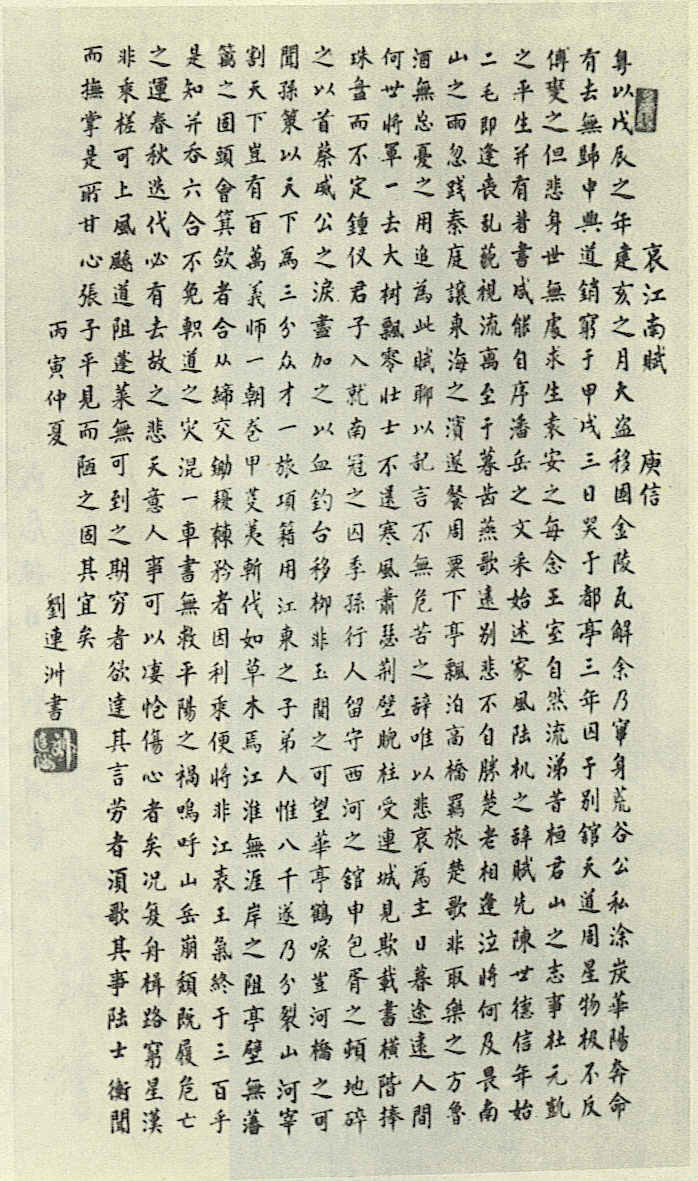 哀江南賦 庾信
粤以戊辰之年建亥之月大盗移国金陵瓦解余乃竄身荒谷公私涂炭華陽奔命
有去無歸中興道銷窮于甲戌三日哭于都亭三年囚于別舘天道周星物极不反
傅燮之但悲身世無處求生袁安之每念王室自然流涕昔桓君山之志事杜元凱
之平生并有著書咸能自序潘岳之文采始述家風陆机之辞賦先陳世德信年始
二毛即逢喪乱藐視流离至于暮齿燕歌遠別悲不自勝楚老相逢泣將何及畏南
山之雨忽踐秦庭讓東海之濱遂餐周粟下亭飄泊高橋羈旅楚歌非取樂之方魯
酒無忘憂之用追為此賦聊以記言不無危苦之辞唯以悲哀為主日暮途遠人間
何世將軍一去大树飄零壮士不還寒風蕭瑟荆壁睨柱受連城見欺載書橫階捧
珠盘而不定鍾仪君子入就南冠之囚季孫行人留守西河之舘申包胥之頓地碎
之以首蔡威公之淚盡加之以血釣台移柳非玉関之可望華亭鶴唳豈河橋之可
聞孫策以天下為三分众才一旅項籍用江東之子弟人惟八千遂乃分裂山河宰
割天下豈有百萬義師一朝卷甲芟夷斬伐如草木焉江淮無涯岸之阻亭壁無藩
籬之固頭會箕斂者合从締交鋤耰棘矜者因利乘便將非江表王氣終于三百乎
是知并吞六合不免軹道之灾混一車書無救平陽之禍嗚呼山岳崩頹既履危亡
之運春秋迭代必有去故之悲天意人事可以凄愴傷心者矣况复舟楫路窮星漢
非乘槎可上風飈道阻蓬萊無可到之期穷者欲達其言劳者須歌其事陆士衡聞
而撫掌是所甘心張子平見而陋之固其宜矣
丙寅仲夏 劉連洲書